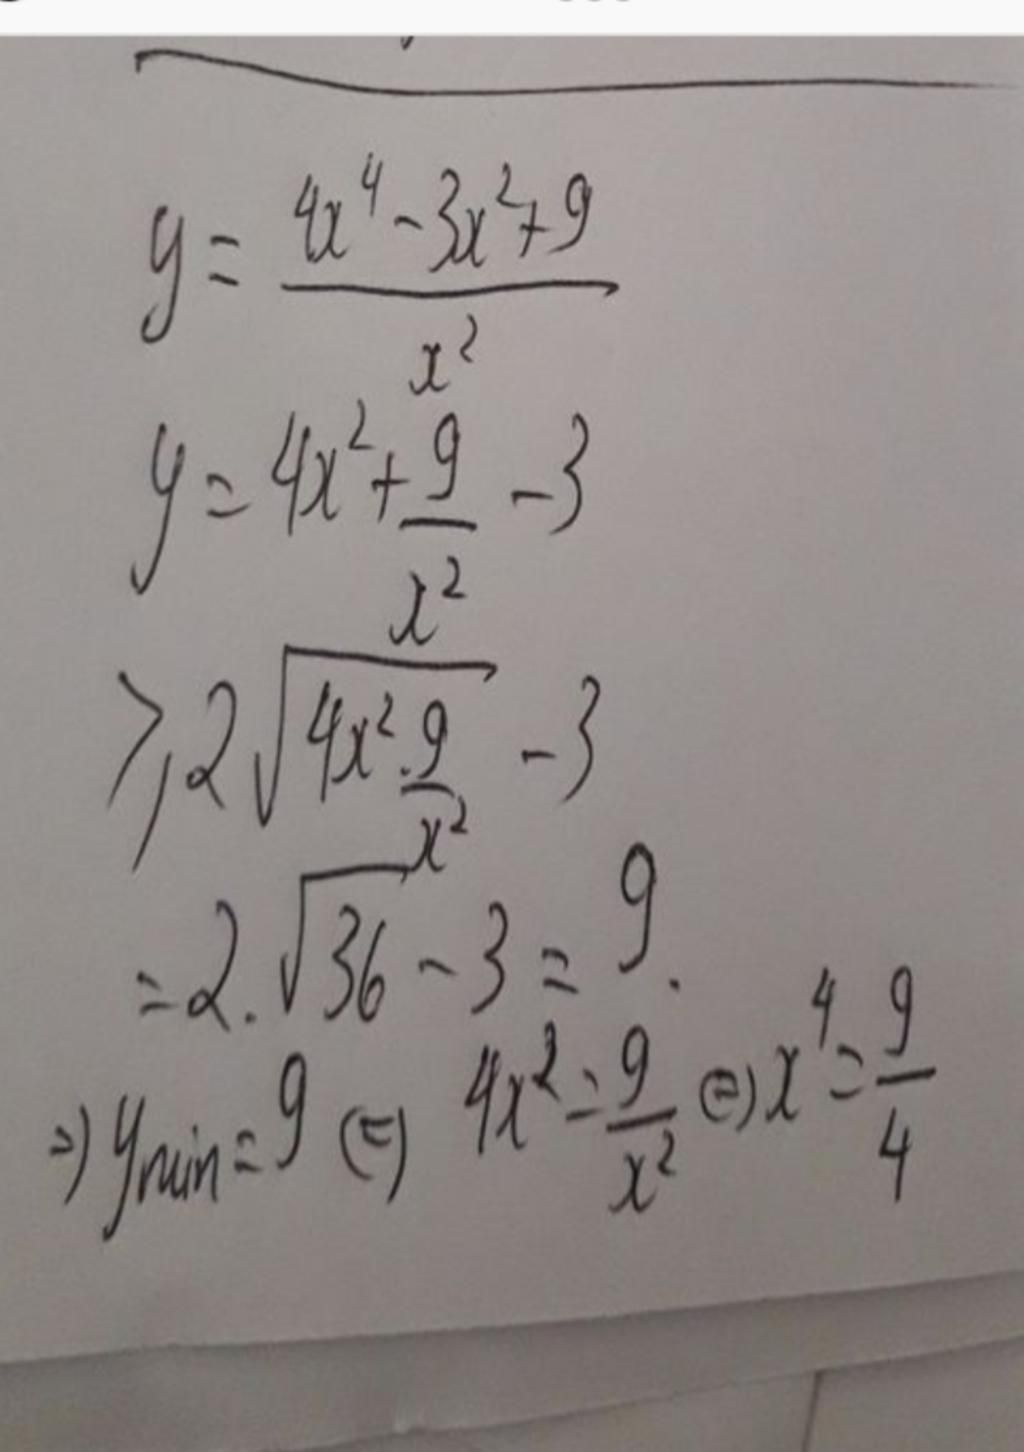 y = (4x⁴ - 3x² + 9)/x²
y = 4x² + 9/x² - 3
⩾ 2√(4x² . 9/x²) - 3
= 2.√36 - 3 = 9.
⇒ ymin = 9 ⇔ 4x² = 9/x² ⇔ x⁴ = 9/4